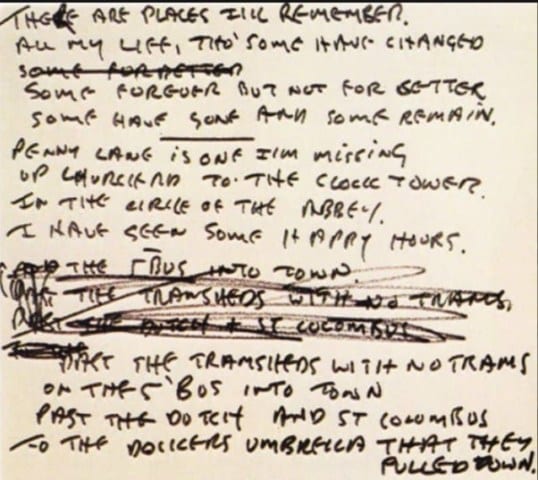 THERE ARE PLACES I'LL REMEMBER.
ALL MY LIFE, THO' SOME HAVE CHANGED
SOME FOR BETTER
SOME FOREVER BUT NOT FOR BETTER
SOME HAVE GONE AND SOME REMAIN.
PENNY LANE IS ONE I'M MISSING
UP CHURCH RD TO THE CLOCK TOWER.
IN THE CIRCLE OF THE ABBEY.
I HAVE SEEN SOME HAPPY HOURS.
THE 5 BUS INTO TOWN.
THE TRAMSHEDS WITH NO TRAMS,
THE DUTCH + ST COLOMBUS
PAST THE TRAMSHEDS WITH NO TRAMS
ON THE 5 BUS INTO TOWN
PAST THE DUTCH AND ST COLUMBUS
TO THE DOCKERS UMBRELLA THAT THEY
PULLED DOWN.